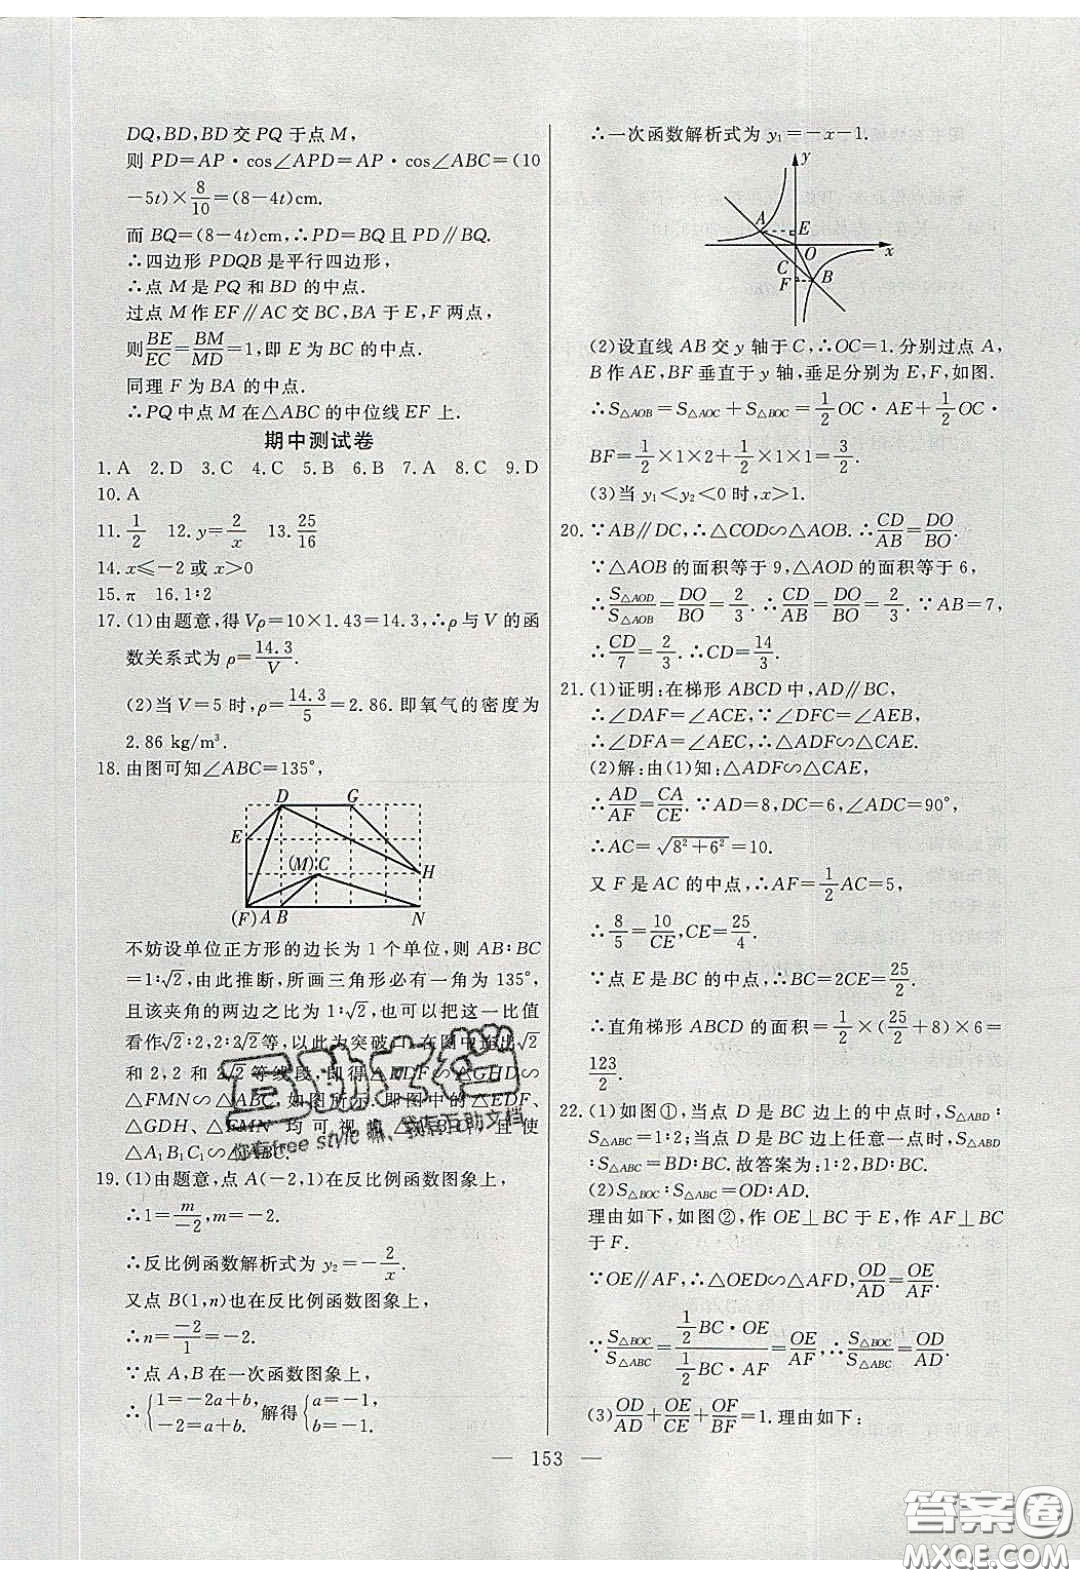 DQ,BD,BD交PQ于点M,
则PD=AP·cos∠APD=AP·cos∠ABC=(10
-5t)×8/10=(8-4t)cm.
而BQ=(8-4t)cm,∴PD=BQ且PD∥BQ.
∴四边形PDQB是平行四边形,
∴点M是PQ和BD的中点.
过点M作EF∥AC交BC,BA于E,F两点,
则BE/EC=BM/MD=1,即E为BC的中点.
同理F为BA的中点.
∴PQ中点M在△ABC的中位线EF上.
期中测试卷
1.A 2.D 3.C 4.C 5.B 6.B 7.A 8.C 9.D
10.A
11.1/2 12.y=2/x 13.25/16
14.x≤-2或x>0
15.π 16.1∶2
17.(1)由题意,得Vρ=10×1.43=14.3,∴ρ与V的函
数关系式为ρ=14.3/V.
(2)当V=5时,ρ=14.3/5=2.86.即氧气的密度为
2.86 kg/m³.
18.由图可知∠ABC=135°,
D G
E
(M) C
H
(F) A B N
不妨设单位正方形的边长为1个单位,则AB∶BC
=1∶√2,由此推断,所画三角形必有一角为135°,
且该夹角的两边之比为1∶√2,也可以把这一比值
看作√2∶2,2∶2√2等,以此为突破口,在图中连出√2
和2,2和2√2等线段,即得△EDF∽△GHD∽
△FMN∽△ABC,如图所示.即图中的△EDF、
△GDH、△FMN均可视为△A₁B₁C₁,且使
△A₁B₁C₁∽△ABC.
19.(1)由题意,点A(-2,1)在反比例函数图象上,
∴1=m/-2,m=-2.
∴反比例函数解析式为y₂=-2/x.
又点B(1,n)也在反比例函数图象上,
∴n=-2/1=-2.
∵点A,B在一次函数图象上,
∴{1=-2a+b, -2=a+b. 解得{a=-1, b=-1.
∴一次函数解析式为y₁=-x-1.
y
A E
O x
C
F B
(2)设直线AB交y轴于C,∴OC=1.分别过点A,
B作AE,BF垂直于y轴,垂足分别为E,F,如图.
∴S△AOB=S△AOC+S△BOC=1/2OC·AE+1/2OC·
BF=1/2×1×2+1/2×1×1=3/2.
(3)当y₁<y₂<0时,x>1.
20.∵AB∥DC,∴△COD∽△AOB.∴CD/AB=DO/BO.
∵△AOB的面积等于9,△AOD的面积等于6,
∴S△AOD/S△AOB=DO/BO=2/3.∴CD/AB=DO/BO=2/3.∵AB=7,
∴CD/7=2/3.∴CD=14/3.
21.(1)证明:在梯形ABCD中,AD∥BC,
∴∠DAF=∠ACE,∵∠DFC=∠AEB,
∴∠DFA=∠AEC,∴△ADF∽△CAE.
(2)解:由(1)知:△ADF∽△CAE,
∴AD/AF=CA/CE.∵AD=8,DC=6,∠ADC=90°,
∴AC=√8²+6²=10.
又F是AC的中点,∴AF=1/2AC=5,
∴8/5=10/CE,CE=25/4.
∵点E是BC的中点,∴BC=2CE=25/2.
∴直角梯形ABCD的面积=1/2×(25/2+8)×6=
123/2.
22.(1)如图①,当点D是BC边上的中点时,S△ABD∶
S△ABC=1∶2;当点D是BC边上任意一点时,S△ABD
∶S△ABC=BD∶BC.故答案为:1∶2,BD∶BC.
(2)S△BOC∶S△ABC=OD∶AD.
理由如下,如图②,作OE⊥BC于E,作AF⊥BC
于F.
∵OE∥AF,∴△OED∽△AFD,OD/AD=OE/AF.
∵S△BOC/S△ABC=(1/2BC·OE)/(1/2BC·AF)=OE/AF,∴S△BOC/S△ABC=OD/AD.
(3)OD/AD+OE/CE+OF/BF=1.理由如下:
— 153 —
互助文档
你有free style嘛、我有互助文档
答案圈
MXQE.COM